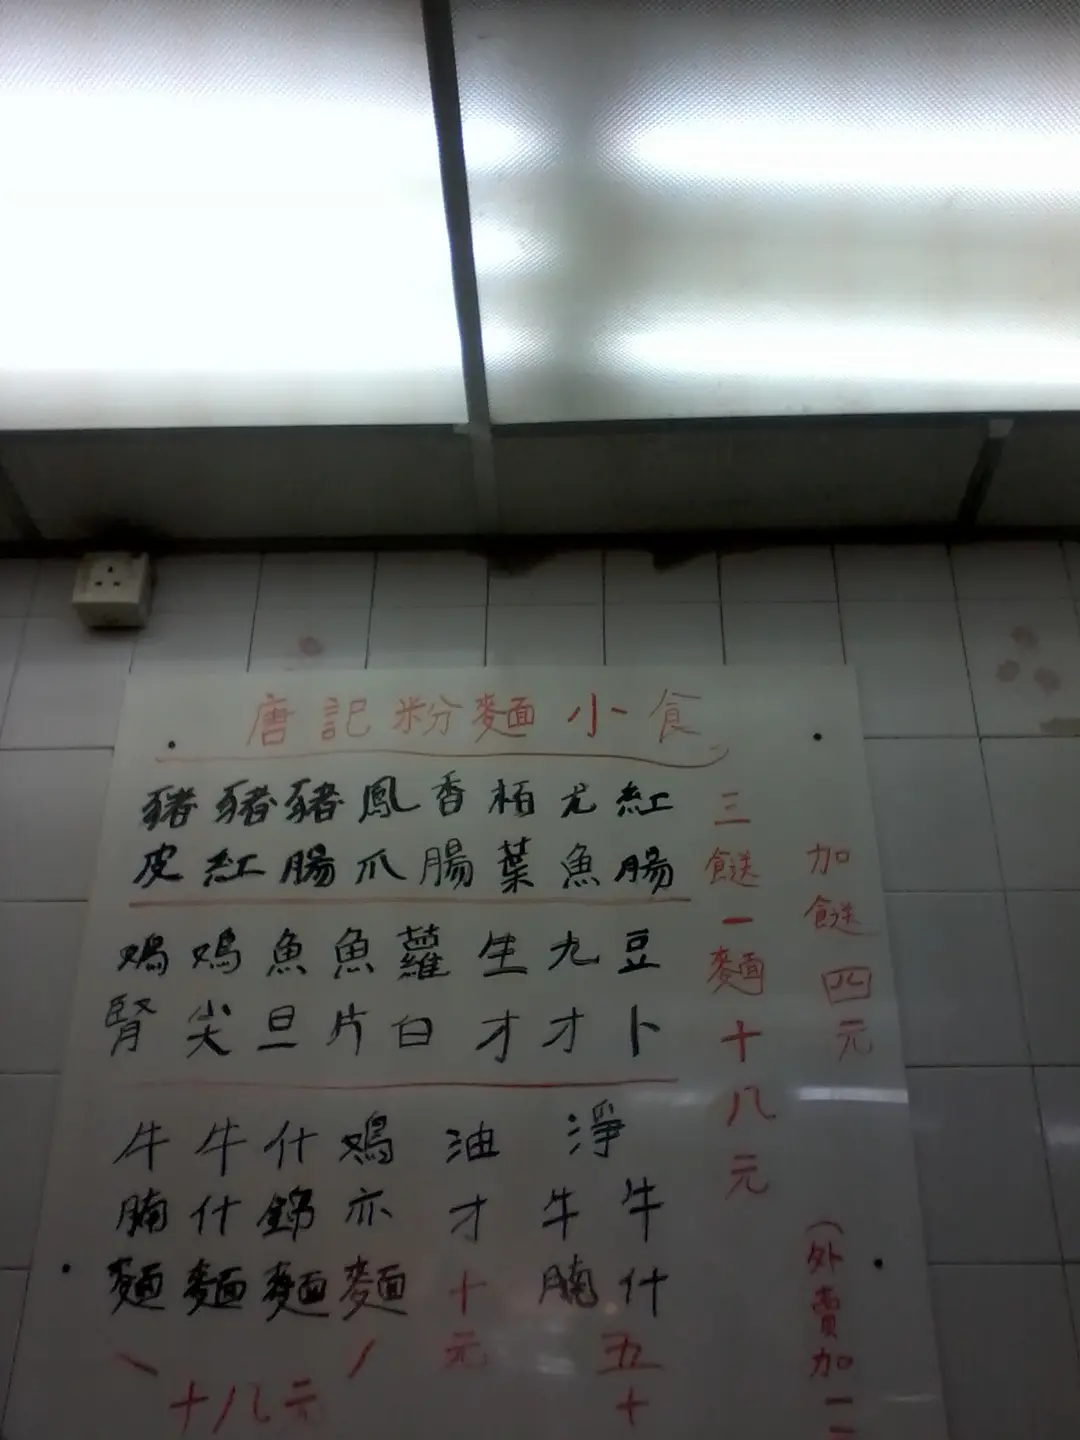 唐記粉麵小食
三餸一麵十八元
加餸四元
紅腸
尤魚
栢葉
香腸
鳳爪
豬腸
豬紅
豬皮
豆卜
九才
生才
蘿白
魚片
魚旦
鳮尖
鳮腎
淨
牛什
牛腩
五十
油才
十元
鳮亦麵
什錦麵
牛什麵
牛腩麵
十八元
(外賣加一